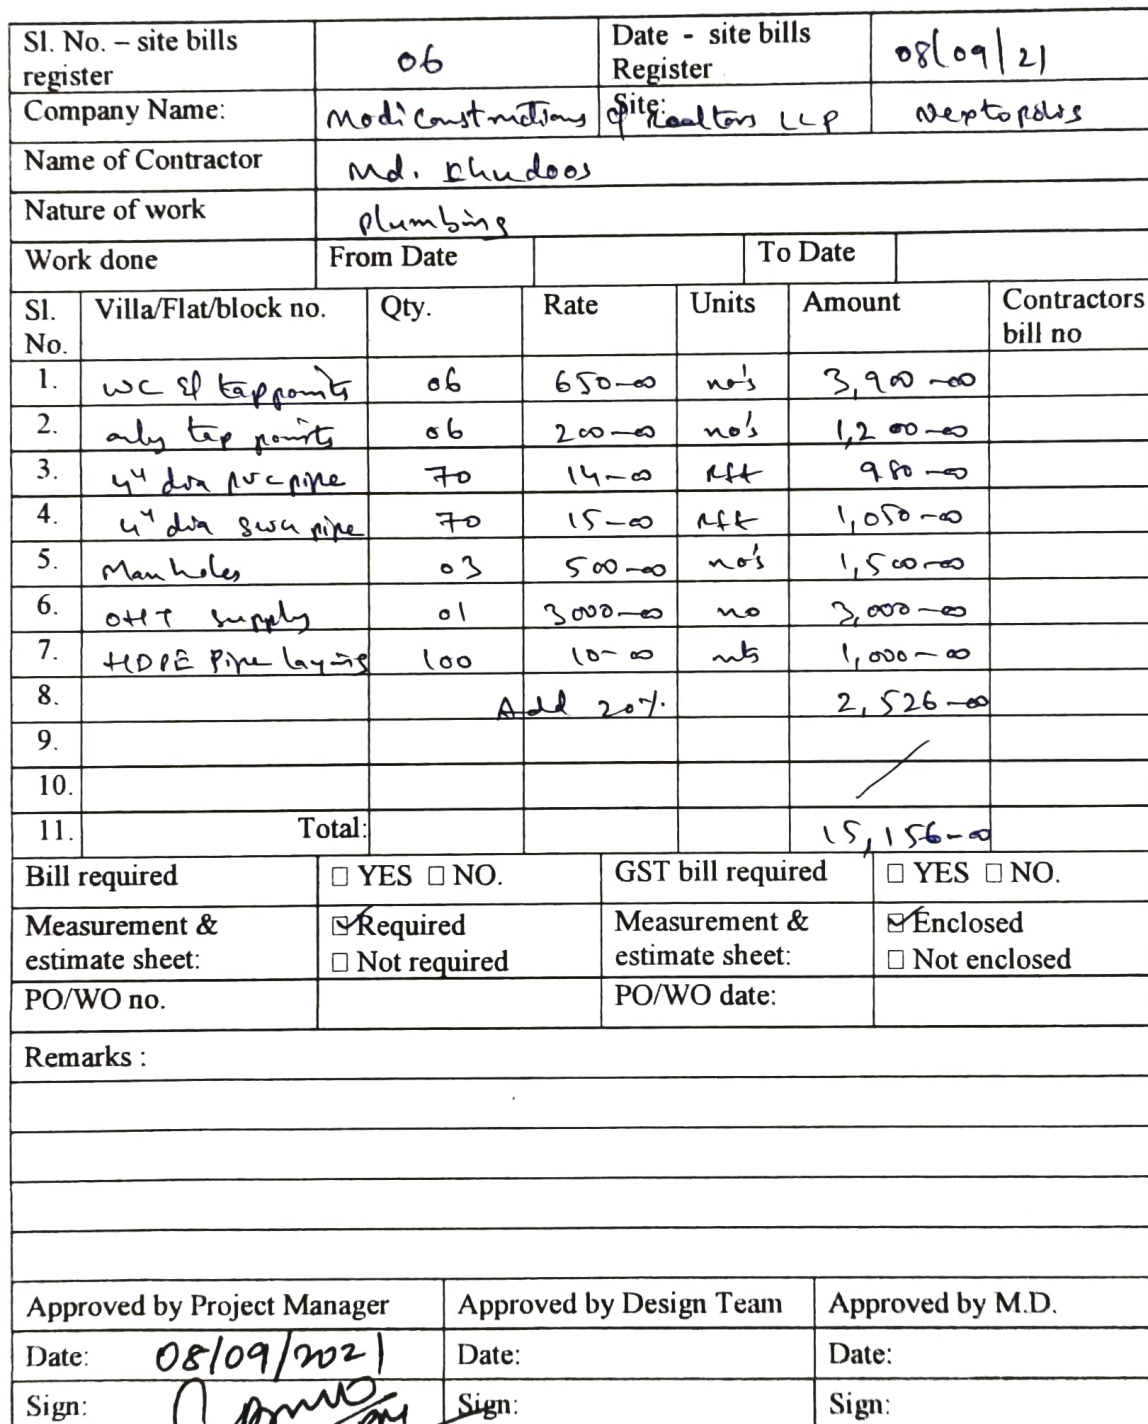 Sl. No. – site bills register 06 Date - site bills Register 08/09/21
Company Name: Modi Constructions & Realtors LLP Site: Nextopolis
Name of Contractor Md. Khudoos
Nature of work plumbing
Work done From Date To Date
Sl. No. Villa/Flat/block no. Qty. Rate Units Amount Contractors bill no
1. WC & tap points 06 650-00 no's 3,900-00
2. only tap points 06 200-00 no's 1,200-00
3. 4" dia pvc pipe 70 14-00 Rft 980-00
4. 4" dia swu pipe 70 15-00 Rft 1,050-00
5. Manholes 03 500-00 no's 1,500-00
6. OHT supply 01 3000-00 no 3,000-00
7. HDPE Pipe laying 100 10-00 mts 1,000-00
8. Add 20% 2,526-00
9.
10.
11. Total: 15,156-00
Bill required □ YES □ NO. GST bill required □ YES □ NO.
Measurement & estimate sheet: ☑ Required □ Not required Measurement & estimate sheet: ☑ Enclosed □ Not enclosed
PO/WO no. PO/WO date:
Remarks :
Approved by Project Manager Approved by Design Team Approved by M.D.
Date: 08/09/2021 Date: Date:
Sign: Sign: Sign: